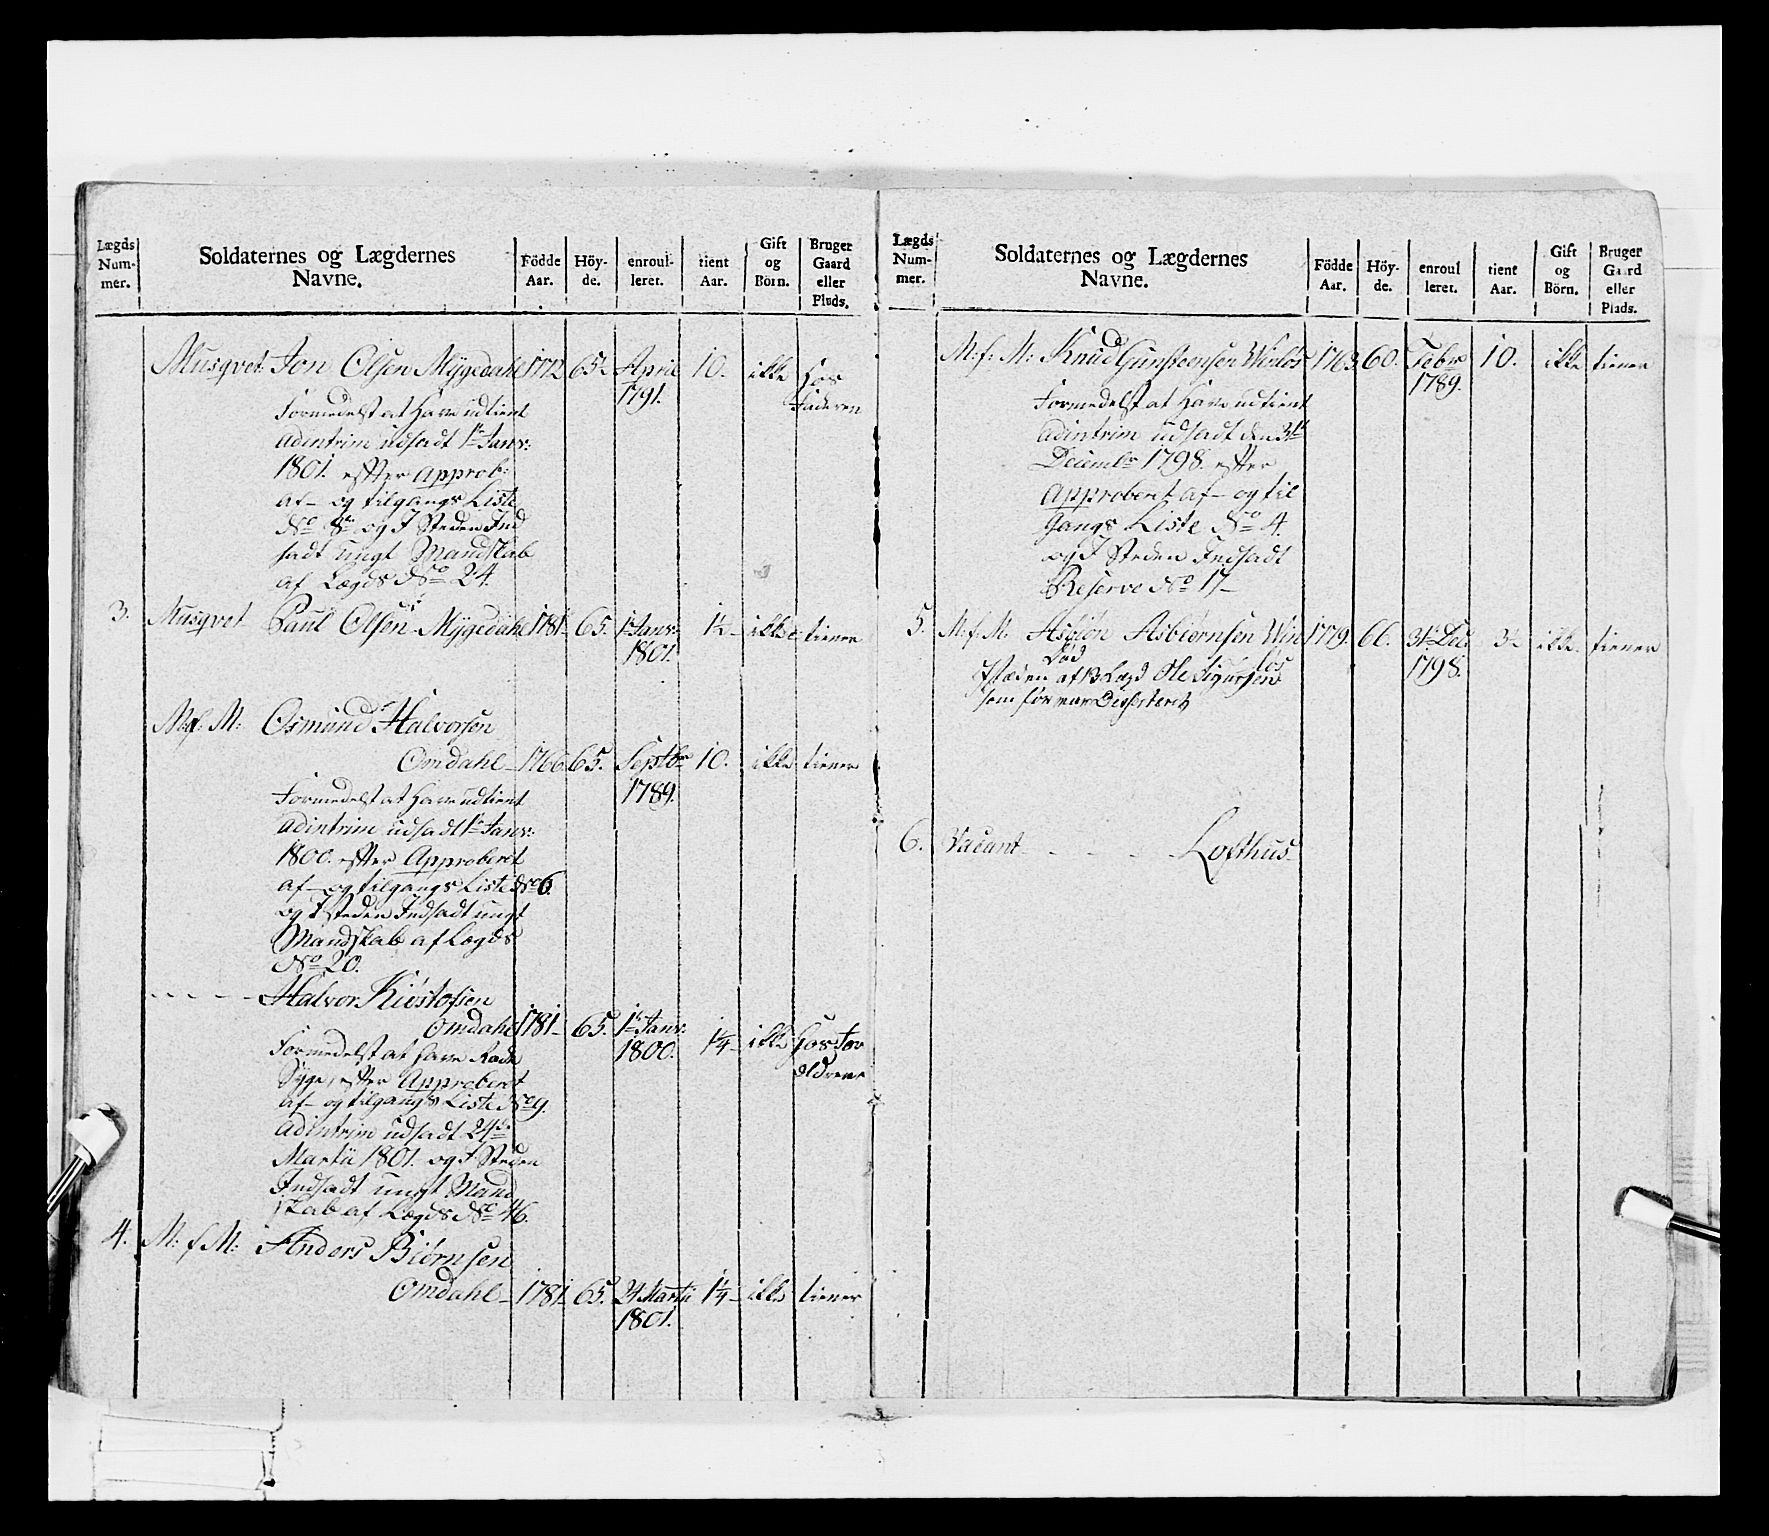 Lægds Num- mer.
Soldaternes og Lægdernes Navne.
Födde Aar.
Höy- de.
enroul- leret.
tient Aar.
Gift og Börn.
Bruger Gaard eller Plads.
Musqvet Jon Olsen Mygedahl 1772 65 April 10. ikke hos
1791. Faderen
Formedelst at have udtient
adintrim udsadt 1te Janv:
1801. efter Approb:
af- og tilgangs Liste
No 8 og I Steden Ind
sadt ungt Mandskab
af Lægds No 24.
3. Musqvet Paul Olsen Mygedahl 1781 65. 1te Janv: 1½ ikke tiener
1801.
M: f: M: Osmund Halvorsen
Omdahl 1766 65. Septbr 10. ikke tiener
1789.
Formedelst at have udtient
adintrim udsadt 1te Janv:
1800. efter Approberet
af- og tilgangs Liste No 6.
og I steden Indsadt ungt
Mandskab af Lægds
No 20.
Halvor Kiöstofsen
Omdahl 1781 65. 1te Janv: 1¼ ikke hos For
1800. ældrene
Formedelst at have Rade
Syge, efter Approberet
af- og tilgangs Liste No 9.
adintrim udsadt 24de
Martii 1801. og I Steden
Indsadt ungt Mand
skab af Lægds No 46.
4. M: f M: Anders Biörnsen
Omdahl 1781 65. Martii 1¼ ikke tiener
1801.
Lægds Num- mer.
Soldaternes og Lægdernes Navne.
Födde Aar.
Höy- de.
enroul leret.
tient Aar.
Gift og Börn.
Bruger Gaard eller Plads.
M: f: M: Knud Gunsteensen 1763 60. Febr 10. ikke tiener
1789.
Formedelst at have udtient
adintrim udsadt den 31te
Decembr 1798. efter
Approberet af- og til
Gangs Liste No 4.
og I Steden Indsadt
Reserve No 17
5. M: f. M. Asbiörnsen Vin 1779. 66. 31te Dec. ikke tiener
Död los 1798.
I stæden af 13 Lægd Ole Sigursen
som för var Deserteret
6. Vacant - - - Lofthus